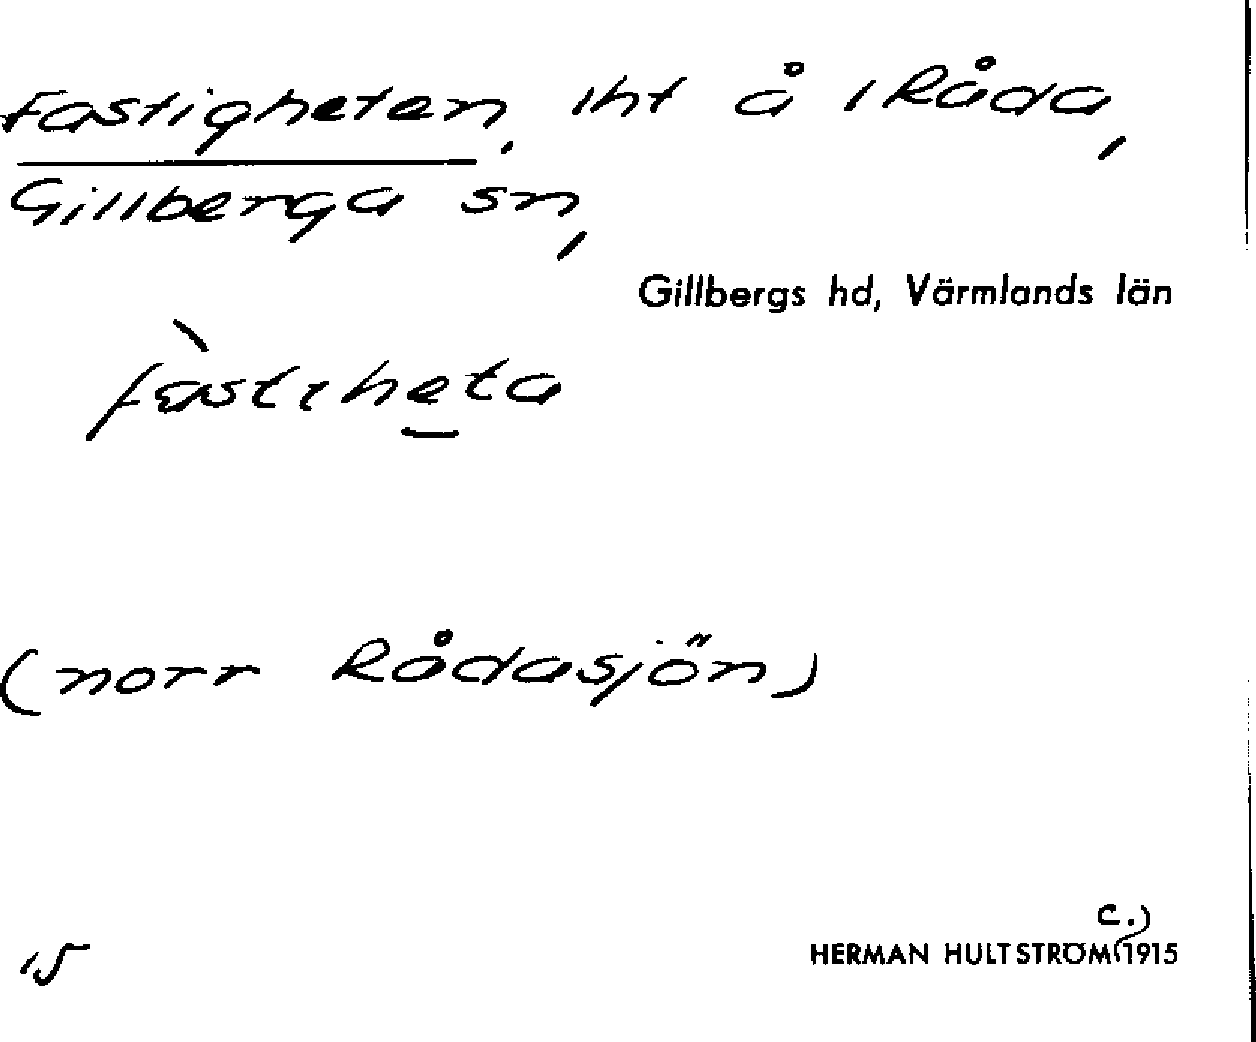 Fastigheten, lht å i Råda,
Gillberga sn,
Gillbergs hd, Värmlands län
fàstiheta
(norr Rådasjön)
c.)
15
HERMAN HULTSTRÖM 1915